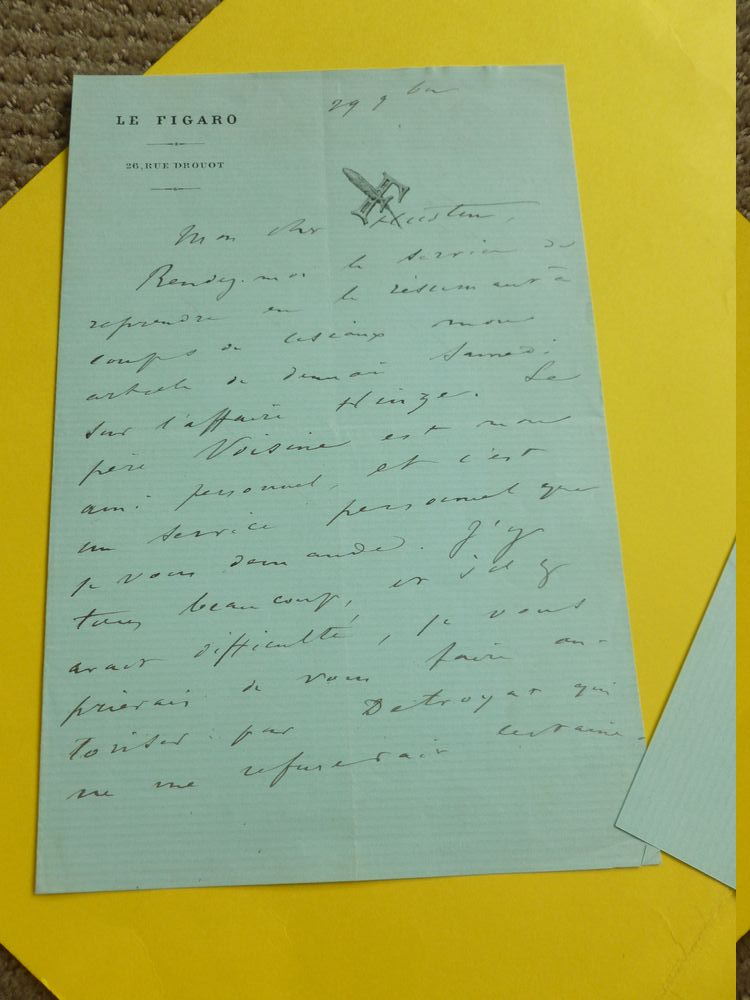 LE FIGARO
26, RUE DROUOT
29 9bre
F
Mon cher
Rendez-moi le service de
reprendre en le résumant à
coups de ciseaux mon
article de demain Samedi
sur l'affaire Hinze. Le
père Voisine est mon
ami personnel, et c'est
un service personnel que
je vous demande. J'y
tiens beaucoup, et s'il y
avait difficulté, je vous
prierais de vous faire au-
toriser par Détroyat qui
ne me refuserait certaine-